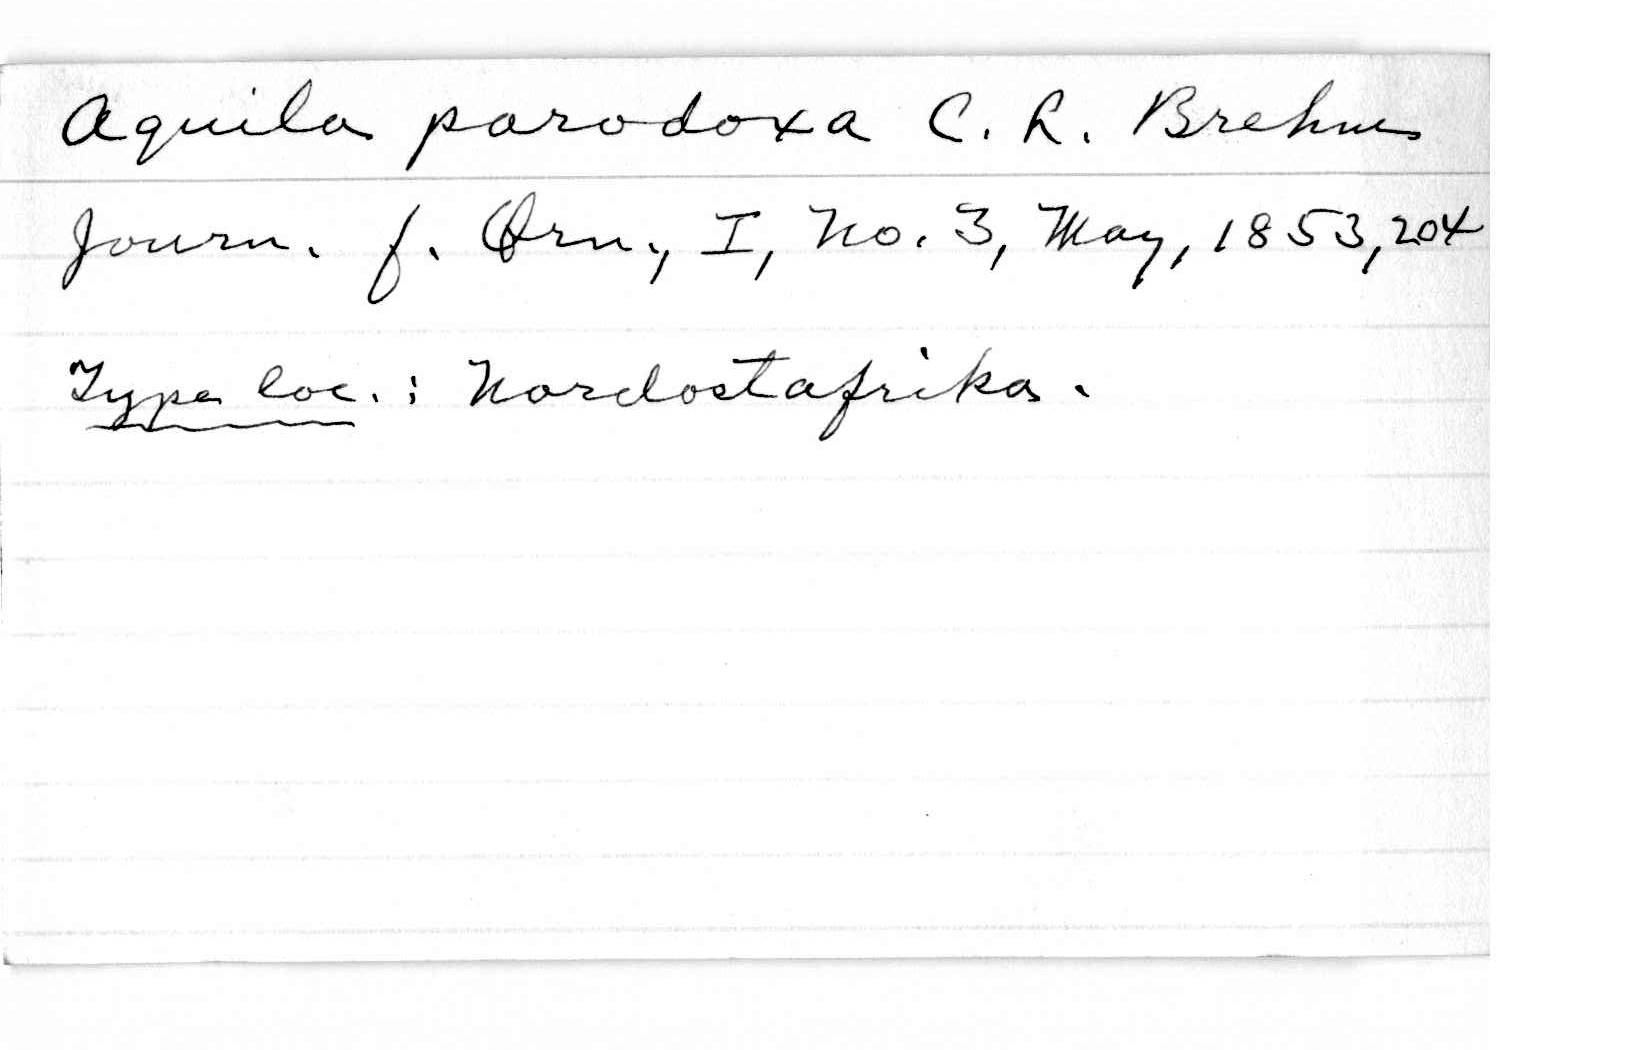 Aquila paradoxa C. L. Brehm
Journ. f. Orn., I, No. 3, May, 1853, 204
Type loc.: Nordostafrika.